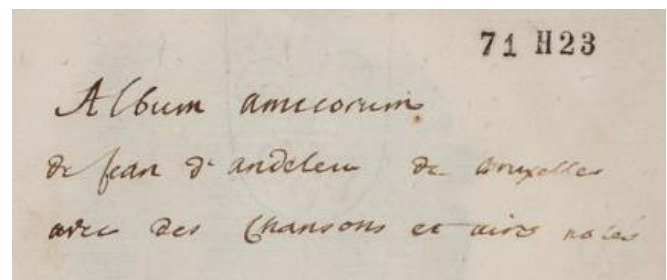 71 H23
Album amicorum
de Jean d'andeleu de bruxelles
avec des Chansons et airs notés